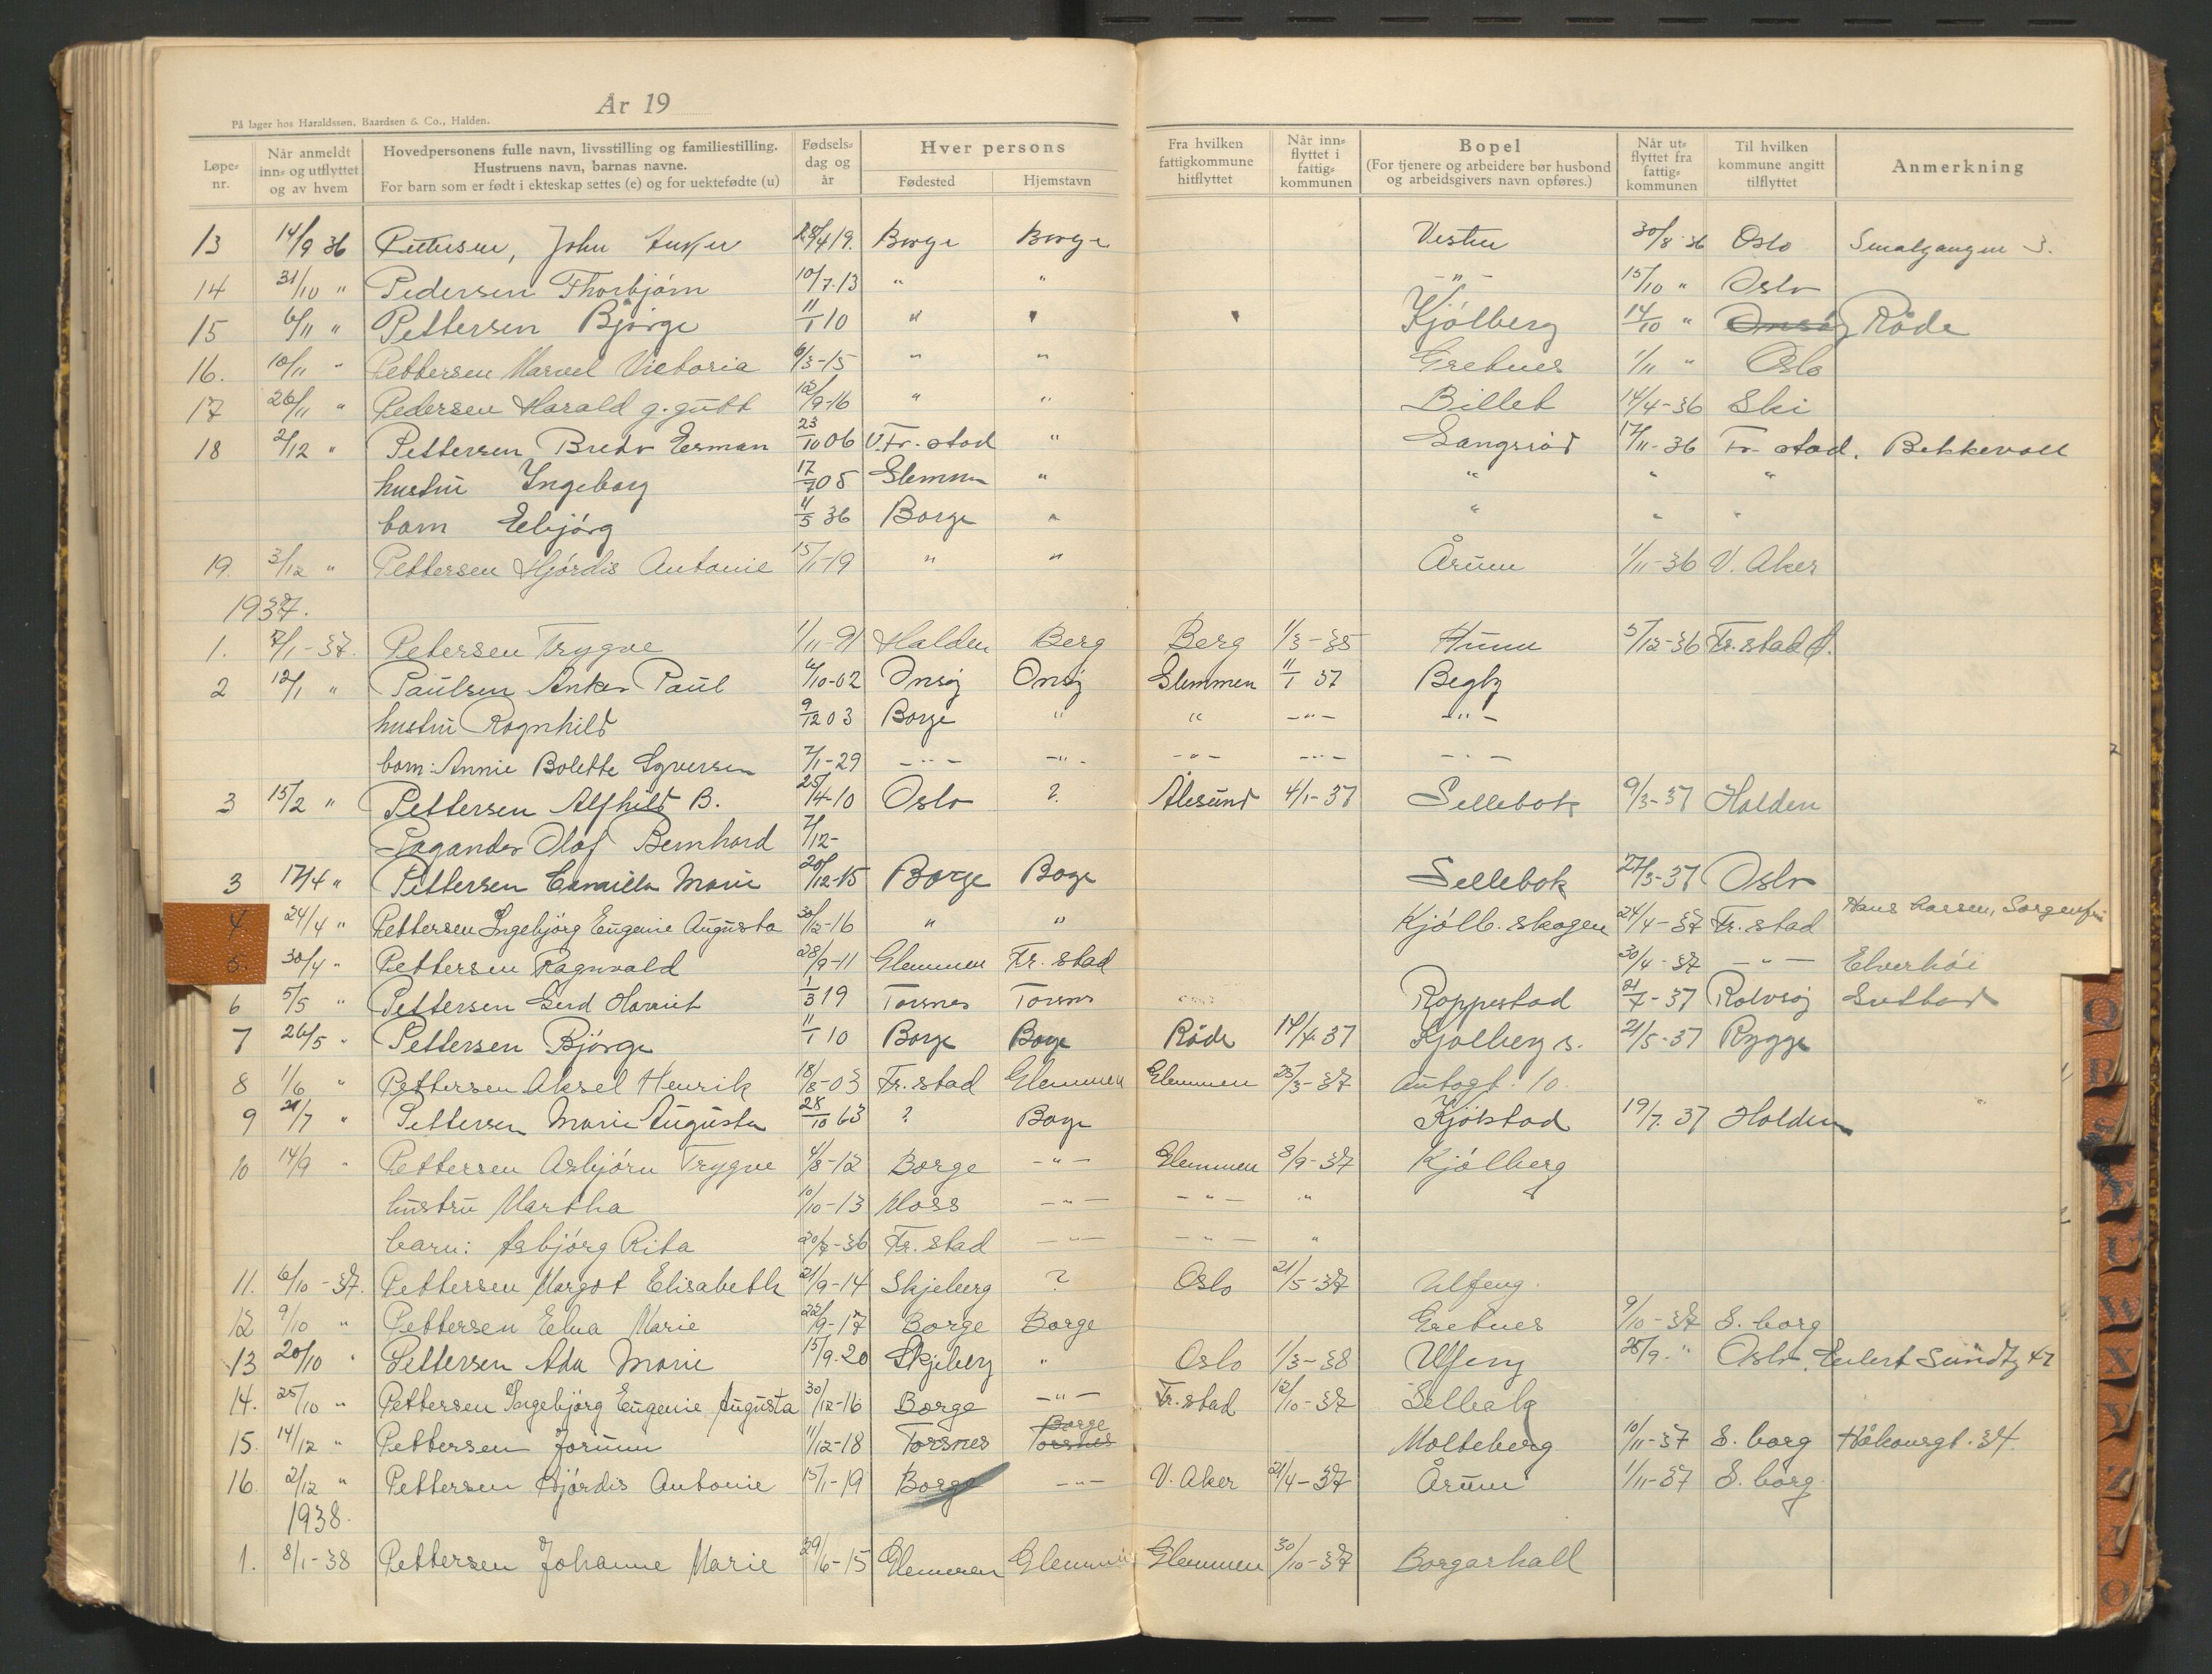 År 19
På lager hos Haraldssøn, Baardsen & Co., Halden.
Løpe-nr. | Når anmeldt inn- og utflyttet og av hvem | Hovedpersonens fulle navn, livsstilling og familiestilling. Hustruens navn, barnas navne. For barn som er født i ekteskap settes (e) og for uektefødte (u) | Fødsels-dag og år | Hver persons Fødested | Hjemstavn | Fra hvilken fattigkommune hitflyttet | Når inn-flyttet i fattig-kommunen | Bopel (For tjenere og arbeidere bør husbond og arbeidsgivers navn opføres.) | Når ut-flyttet fra fattig-kommunen | Til hvilken kommune angitt tilflyttet | Anmerkning
13 14/9 36 Pettersen, John Anker 28/4 19. Borge Borge Vestre 30/8 36 Oslo Smalgangen 3.
14 31/10 " Pedersen Thorbjørn 10/7-13 " " -"- 15/10 " Oslo
15 6/11 " Pettersen Bjørge 11/1 10 " " " Kjølberg 14/10 " Onsøy Råde
16. 10/11 " Pettersen Marvel Victoria 6/3-15 " " Gretnes 1/11 " Oslo
17 26/11 " Pedersen Harald g. gutt 12/9-16 " " Billet 14/4-36 Ski
18 2/12 " Pettersen Bredo Erman 23/10 06 V. Fr. stad " Langsrød 17/11-36 Fr. stad. Bekkevoll
hustru Ingeborg 17/7 05 Glemmen " " " "
barn Elbjørg 11/5 36 Borge " " " "
19. 3/12 " Pettersen Hjørdis Antonie 15/1-19 " " Årum 1/11-36 V. Aker
1937.
1. 7/1-37. Petersen Trygve 1/11-91 Halden Berg Berg 1/3-35 Hunn 5/12-36 Fr. stad
2 12/1 " Paulsen Anker Paul 6/10-02 Onsøy Onsøy Glemmen 11/1 37 Begby
hustru Ragnhild 9/12 03 Borge " " -"- -"-
barn: Annie Bolette Syversen 7/1-29 -"- -"- -"- -"- -"-
3 15/2 " Pettersen Alfhild B. 25/4-10 Oslo ? Ålesund 4/1-37 Sellebok 9/3-37 Halden
Pagander Olaf Bernhard 7/12-
3 17/4 " Pettersen Camilla Marie 20/12-15 Borge Borge Sellebok 27/3-37 Oslo
4 24/4 " Pettersen Ingebjørg Eugenie Augusta 30/12-16 " " Kjølb. skogen 24/4-37 Fr. stad Hans Larsen, Sorgenfri
5. 30/4 " Pettersen Ragnvald 28/9-11 Glemmen Fr. stad 30/4-37 -"- Elverhøi
6 5/5 " Pettersen Gerd Harriet 1/3 19 Torsnes Torsnes Roppestad 21/7-37 Rolvsøy
7 26/5 " Pettersen Bjørge 11/1 10 Borge Borge Råde 14/4-37 Kjølberg s. 21/5-37 Rygge
8 1/6 " Pettersen Aksel Henrik 18/8-03 Fr. stad Glemmen Glemmen 25/3-37 Autogt. 10.
9 21/7 " Pettersen Marie Augusta 28/10 63 ? Borge Kjølstad 19/7. 37 Halden
10 14/9 " Pettersen Asbjørn Trygve 4/8-12 Borge -"- Glemmen 8/9-37 Kjølberg
hustru Martha 10/10-13 Moss -"- -"- "
barn: Asbjørg Rita 20/7-36 Fr. stad -"- -"- "
11. 6/10-37. Pettersen Margot Elisabeth 21/9-14 Skjeberg ? Oslo 21/5-37 Ulfeng.
12 9/10 " Pettersen Elna Marie 22/9-17 Borge Borge Gretnes 9/10-37 S. borg
13 20/10 " Pettersen Ada Marie 15/9-20 Skjeberg " Oslo 1/3-38 Ulfeng 25/9-" Oslo, Eilert Sundtg 47
14. 25/10 " Pettersen Ingebjørg Eugenie Augusta 30/12-16 Borge -"- Fr. stad 12/10-37
15. 14/12 " Pettersen Jorunn 11/12-18 Torsnes Torsnes Borge Molteberg 10/11-37 S. borg Håkonsgt. 34.
16. 2/12 " Pettersen Hjørdis Antonie 15/1-19 Borge -"- V. Aker 21/4-37 Årum 1/11-37 S. borg.
1938.
1. 8/1-38 Pettersen Johanne Marie 29/6-15 Glemmen Glemmen Glemmen 30/10-37 Borgarhall
Q
R
U
W
X
Y
Z
Æ
Ø